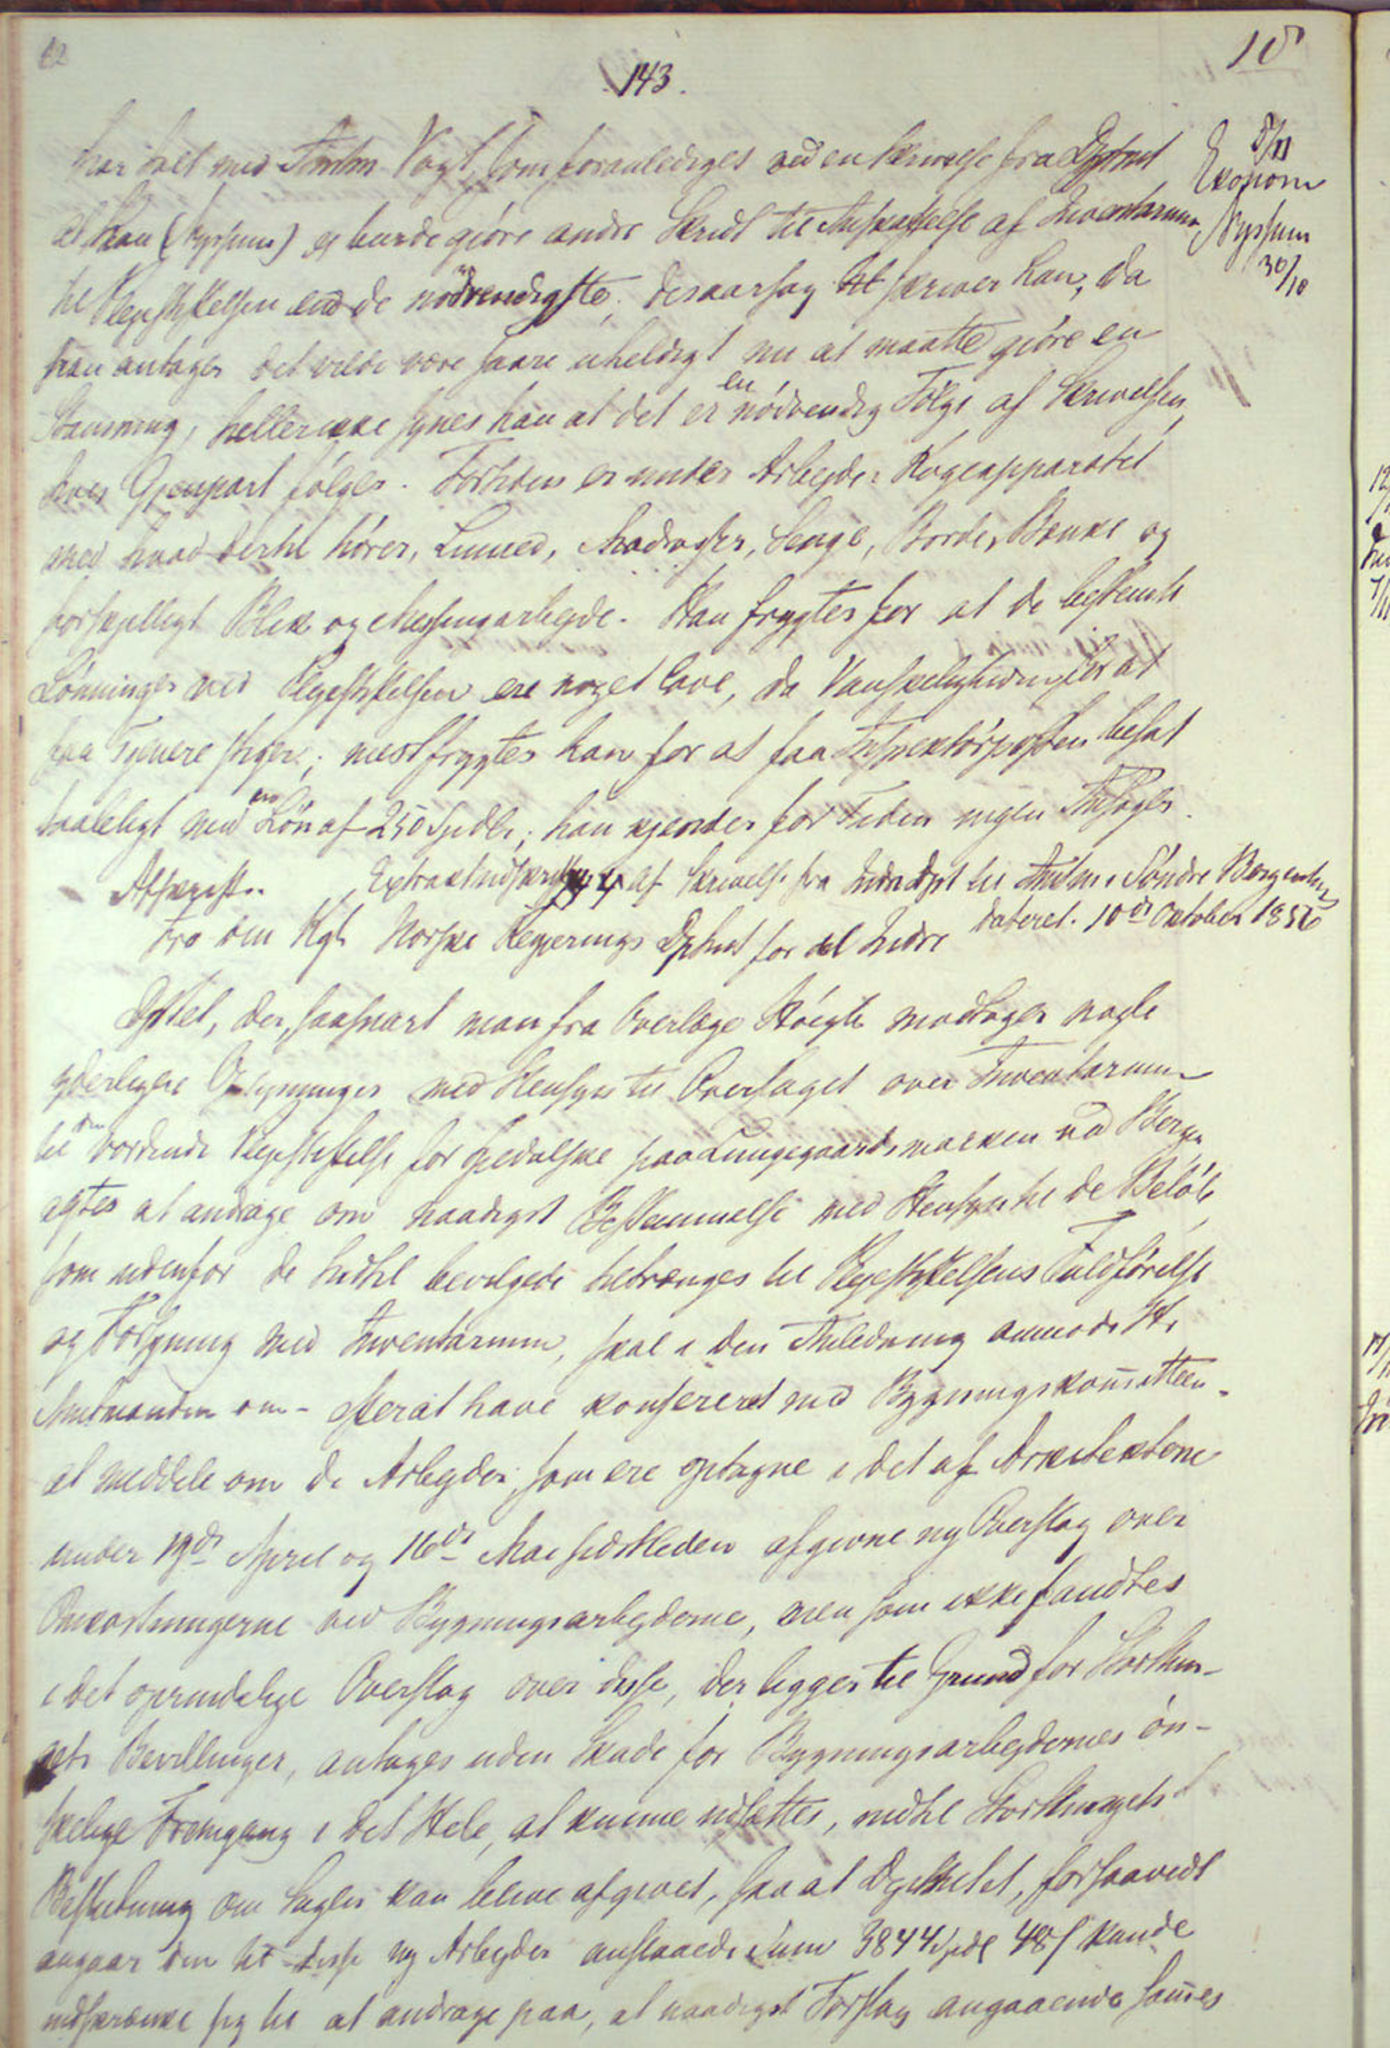 62
143.
18
har talt med Amtm Vogt, som foranlediges ved en Skrivelse fra Dptmt
at han (Nyssum) ej burde gjøre andre Skridt til Anskaffelse af Inventarium
til Plejestiftelsen end de nødvendigste; desaarsag skriver han, da
han antager det vilde være saare uheldigt nu at maatte gjøre en
Standsning, heller ikke synes han at det er en nødvendig Følge af Skrivelsen,
hvis Gjenpart følger. Fortiden er under Arbejde: Kogeapparatet
med hvad dertil hører, Linned, Madrasser, Senge, Borde, Bænke og
forskjelligt Blik og Messingarbejde. Han frygter for at de bestemte
Lønninger ved Plejestiftelsen ere noget lave, da Vanskeligheden for at
faa Tjenere stiger; mest frygter han for at faa Inspektørposten besat
taaleligt med en Løn af 250 Spdlr; han kjender for Tiden ingen Ansøger.
Afskrift. Extraktudskrift af Skrivelse fra Indredpt til Amtm i Søndre Bergenhus
dateret 10de Oktober 1856
Fra den Kgl Norske Regjerings Dptmt for det Indre
Dptet, der, saasnart man fra Overlæge Høegh modtager nogle
yderligere Oplysninger med Hensyn til Overslaget over Inventarium
til den vordende Plejestiftelse for Spedalske paa Lungegaardsmarken ved Bergen
agter at andrage om naadigst Bestemmelse med Hensyn til de Beløb,
som udenfor de hidtil bevilgede tiltrænges til Plejestiftelsens Fuldførelse
og Forsyning med Inventarium, skal i den Anledning anmode Hr
Amtmanden om - efter at have konfereret med Bygningskomitteen -
at meddele om de Arbejder, som ere optagne i det af Arkitekterne
under 19de April og 16de Mai sidstleden afgivne ny Overslag over
Omkostningerne ved Bygningsarbejderne, men som ikke fandtes
i det oprindelige Overslag over disse, der ligger til Grund for Storthin-
gets Bevillinger, antages uden Skade for Bygningsarbejdernes øn-
skelige Fremgang i det Hele, at kunne udsættes, indtil Storthingets
Beslutning om Sagen kan blive afgivet, saa at Dptmtet, forsaavidt
angaar den til disse ny Arbejder anslaaede Sum 3844 Spdl 48 s kunde
indskrænke sig til at andrage paa, at naadigst Forslag angaaende samme
5/11
Exonom
Nyssum
30/10